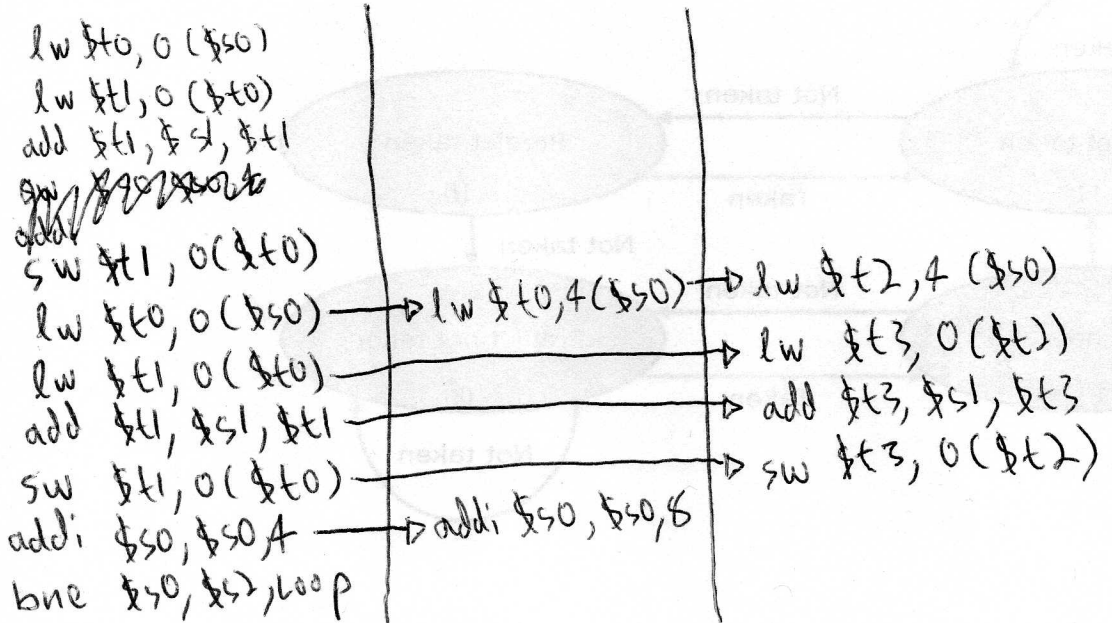 lw $t0, 0($s0)
lw $t1, 0($t0)
add $t1, $s1, $t1
sw $t1, 0($t0)
lw $t0, 0($s0) → lw $t0, 4($s0) → lw $t2, 4($s0)
lw $t1, 0($t0) → lw $t3, 0($t2)
add $t1, $s1, $t1 → add $t3, $s1, $t3
sw $t1, 0($t0) → sw $t3, 0($t2)
addi $s0, $s0, 4 → addi $s0, $s0, 8
bne $s0, $s2, Loop
Not taken
Taken
Not taken
Not taken